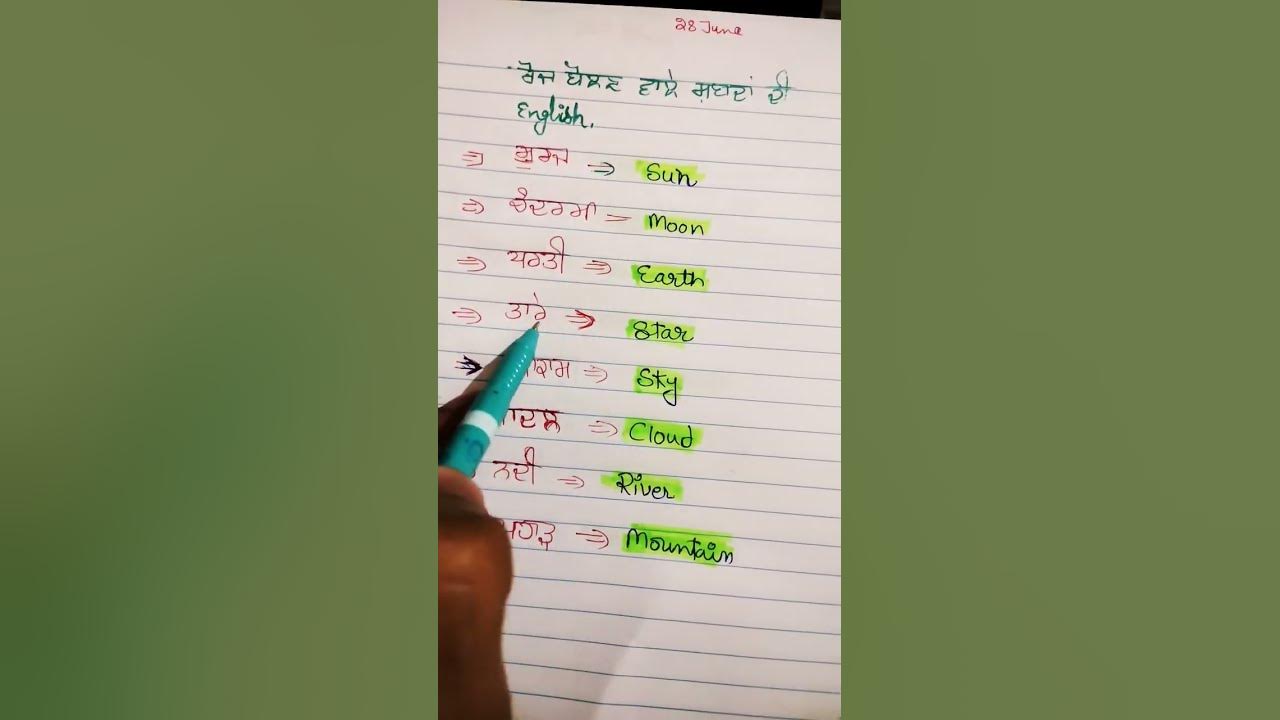 28 June
ਰੋਜ ਬੋਲਣ ਵਾਲੇ ਸ਼ਬਦਾਂ ਦੀ
English.
⇒ ਸੂਰਜ ⇒ Sun
⇒ ਚੰਦਰਮਾ = Moon
⇒ ਧਰਤੀ ⇒ Earth
⇒ ਤਾਰੇ ⇒ Star
⇒ ⇒ Sky
⇒ Cloud
ਨਦੀ ⇒ River
⇒ Mountain